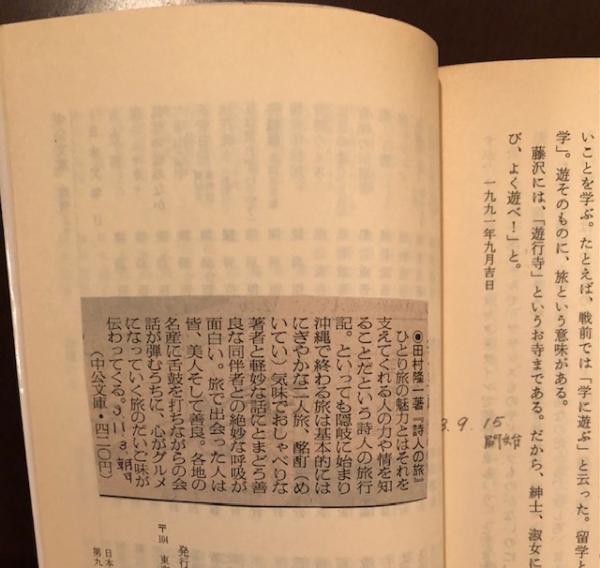 いことを学ぶ。たとえば、戦前では「学に遊ぶ」と云った。留学と
学」。遊そのものに、旅という意味がある。
藤沢には、「遊行寺」というお寺まである。だから、紳士、淑女に
び、よく遊べ!」と。
一九九一年九月吉日
3.9.15
◉田村隆一著『詩人の旅』
ひとり旅の魅力とはそれを
支えてくれる人の力や情を知
ることだという詩人の旅行
記。といっても隠岐に始まり
沖縄で終わる旅は基本的には
にぎやかな二人旅、酩酊(め
いてい)気味でおしゃべりな
著者と軽妙な話にとまどう善
良な同伴者との絶妙な呼吸が
面白い。旅で出会った人は
皆、美人そして善良。各地の
名産に舌鼓を打ちながらの会
話が弾むうちに、心がグルメ
になっていく旅のだいご味が
伝わってくる。
(中公文庫・四二〇円)
3.11.3.朝日
発行
〒104 東京
日本
第九